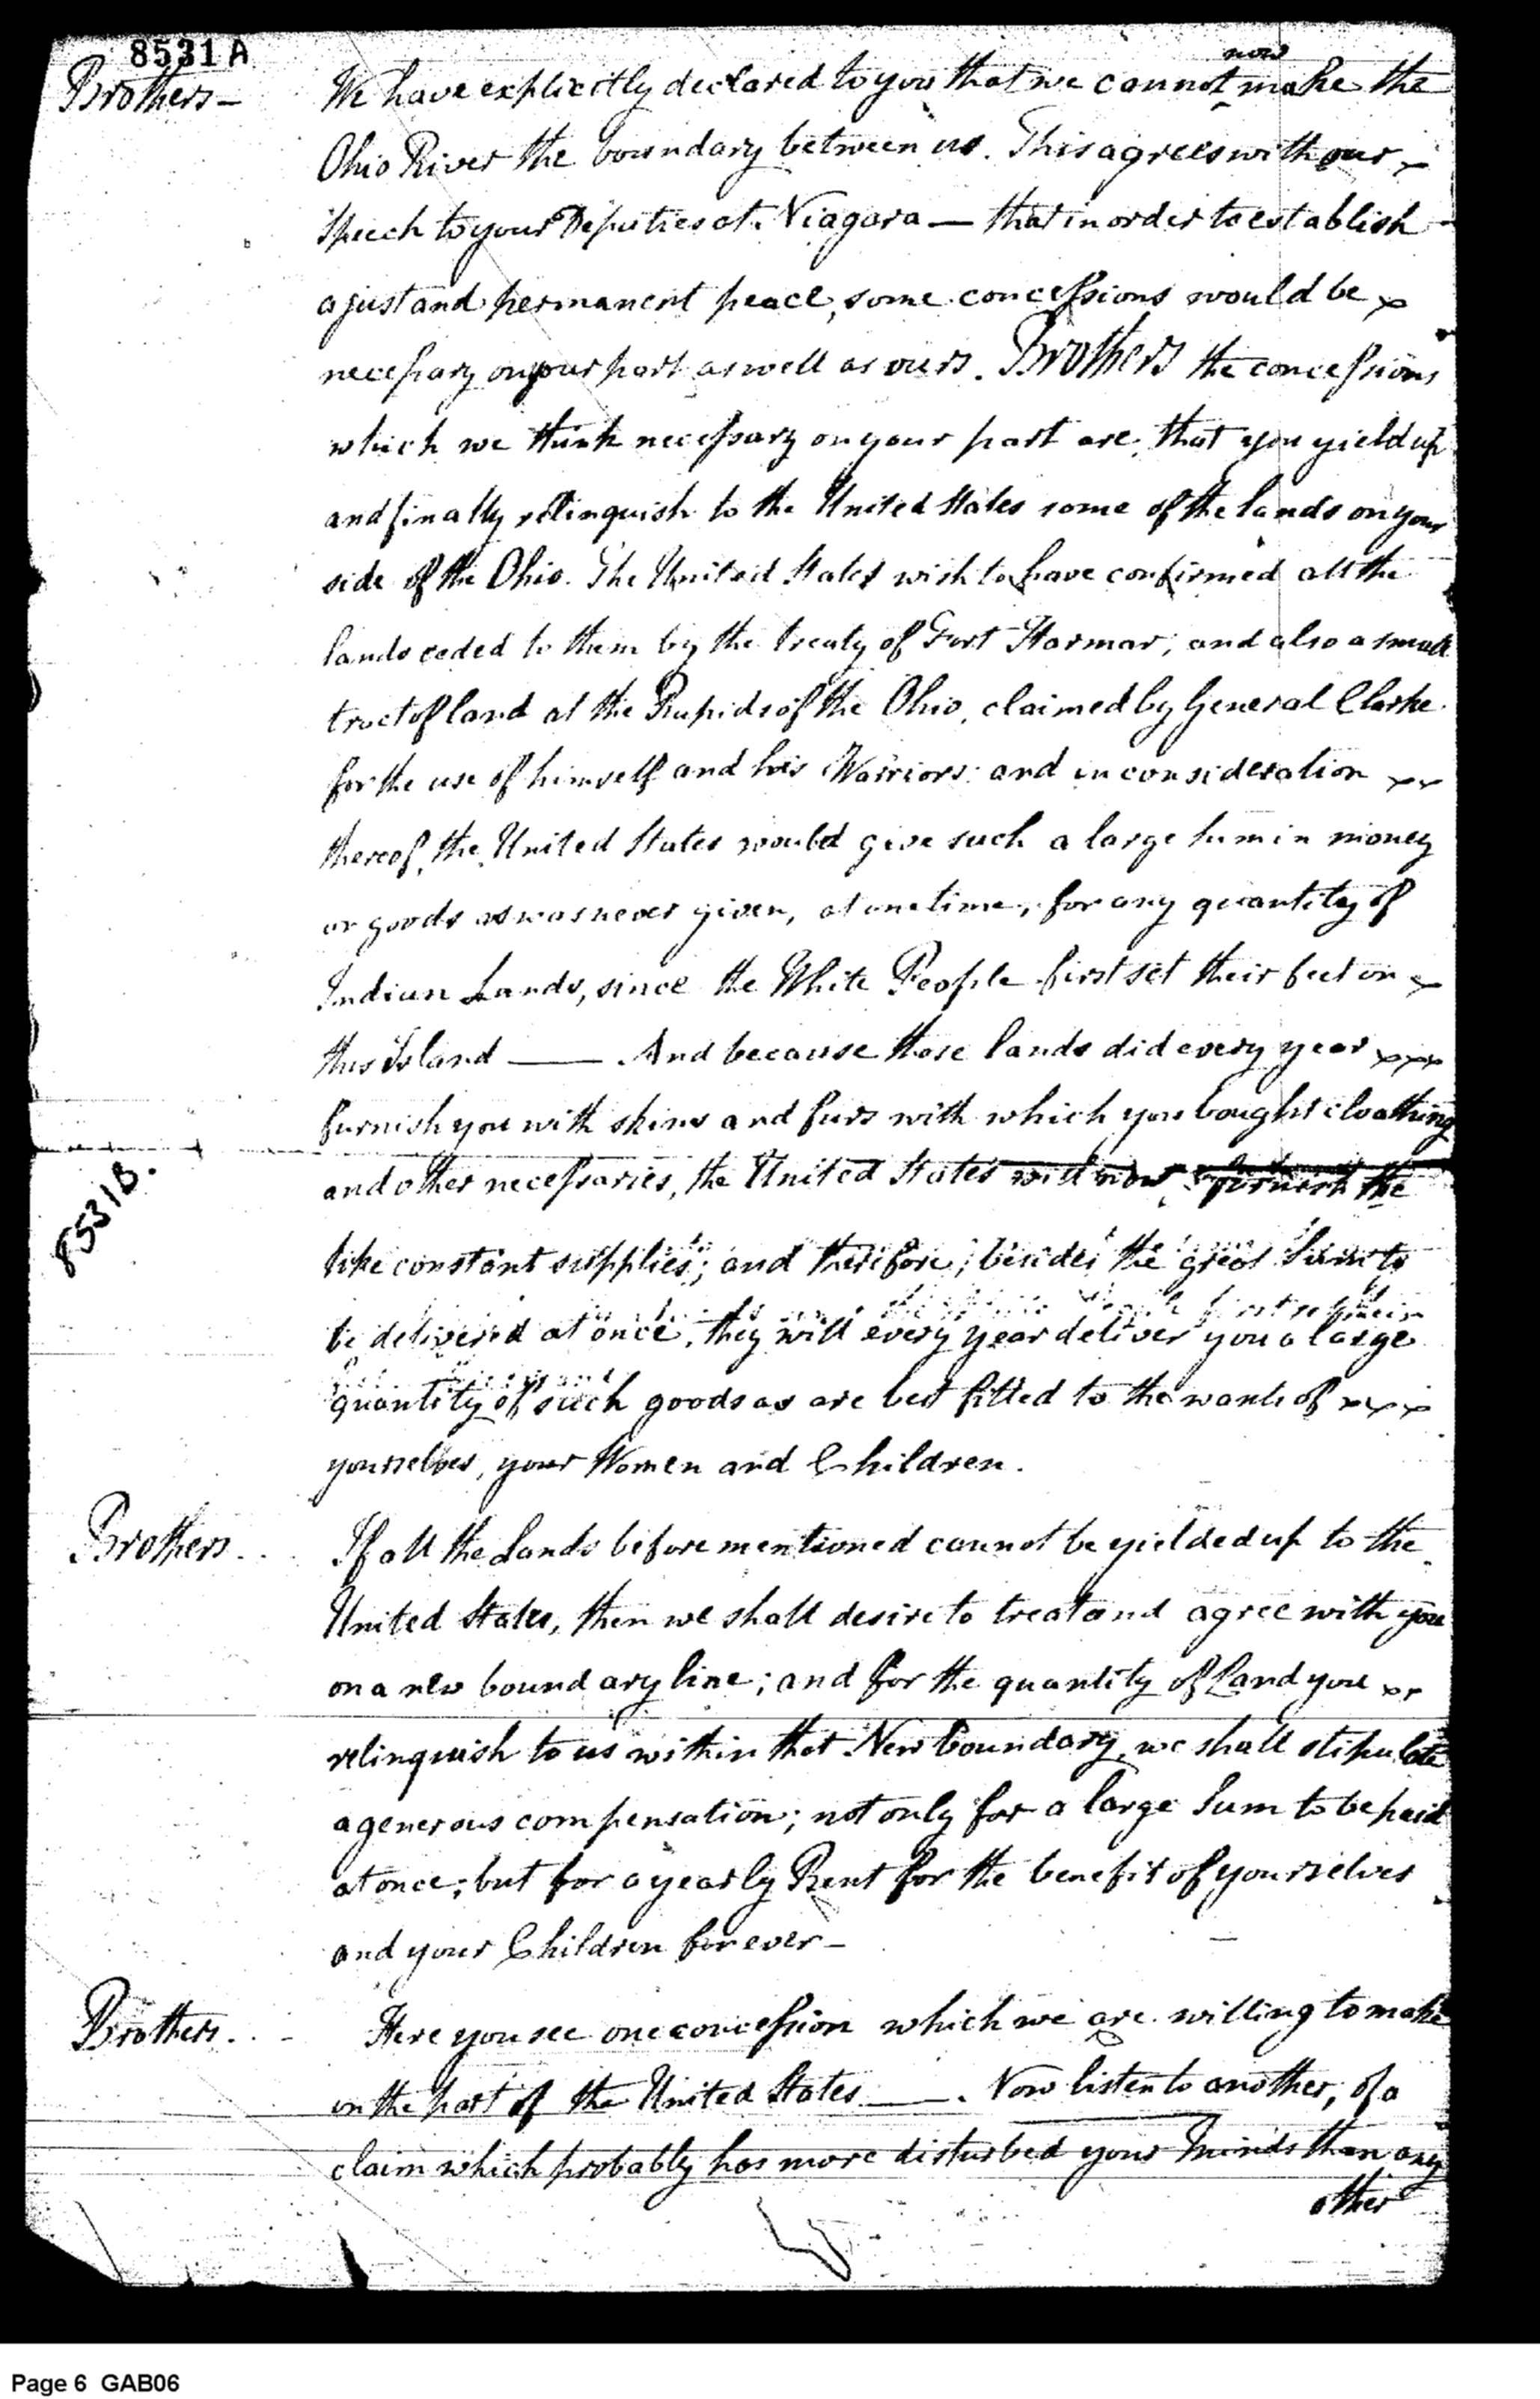 8531 A
now
Brothers - We have explicitly declared to you that we cannot make the
Ohio River the boundary between us. This agrees with our
Speech to your Deputies at Niagara — that in order to establish
a just and permanent peace, some concessions would be
necessary on your part as well as ours. Brothers the concessions
which we think necessary on your part are, that you yield up
and finally relinquish to the United States some of the lands on your
side of the Ohio. The United States wish to have confirmed all the
lands ceded to them by the treaty of Fort Harmar, and also a small
tract of land at the Rapids of the Ohio, claimed by General Clarke
for the use of himself and his Warriors: and in consideration
thereof, the United States would give such a large sum in money
or goods as was never given, at one time, for any quantity of
Indian Lands, since the White People first set their feet on
this Island — And because those lands did every year
furnish you with skins and furs with which you bought cloathing
and other necessaries, the United States will now furnish the
8531B.
like constant supplies; and therefore, besides the great Sum to
be delivered at once, they will every year deliver you a large
quantity of such goods as are best fitted to the wants of
yourselves, your Women and Children.
Brothers. If all the Lands before mentioned cannot be yielded up to the
United States, then we shall desire to treat and agree with you
on a new boundary line; and for the quantity of Land you
relinquish to us within that New boundary, we shall stipulate
a generous compensation; not only for a large Sum to be paid
at once; but for a yearly Rent for the benefit of yourselves
and your Children forever -
Brothers. Here you see one concession which we are willing to make
on the part of the United States —. Now listen to another, of a
claim which probably has more disturbed your minds than any
other
Page 6 GAB06